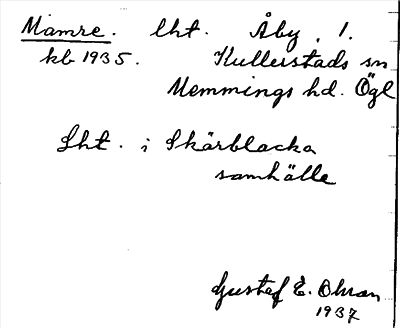 Mamre. lht. Åby. 1.
kb 1935. Kullerstads sn
Memmings hd. Ögl
Lht. i Skärblacka
samhälle
Gustaf E. Ohman
1937